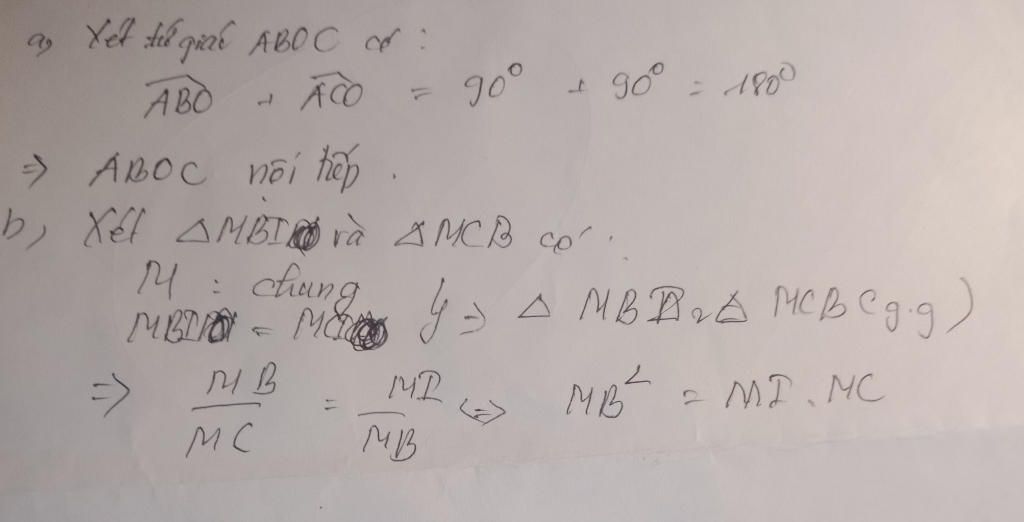 a, Xét tứ giác ABOC có :
ABO + ACO = 90° + 90° = 180°
=> ABOC nội tiếp .
b, Xét △MBI và △MCB có :
M : chung
MBI = } => △ MBI ~ △ MCB (g.g)
=> MB/MC = MI/MB <=> MB² = MI . MC